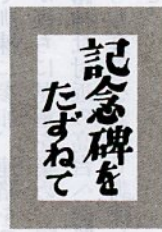 記念碑を
たずねて